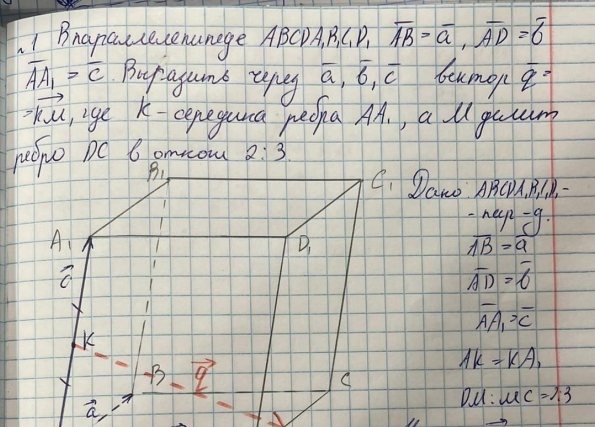 №1 В параллелепипеде ABCDA₁B₁C₁D₁ AB = a, AD = b
AA₁ = c. Выразить через a, b, c вектор q =
= KM, где K - середина ребра AA₁, а M делит
ребро DC в отнош 2:3
B₁
C₁
Дано: ABCDA₁B₁C₁D₁ -
- пар-д.
A₁
D₁
AB = a
c
AD = b
AA₁ = c
K
AK = KA₁
B
q
C
DM:MC = 2:3
a